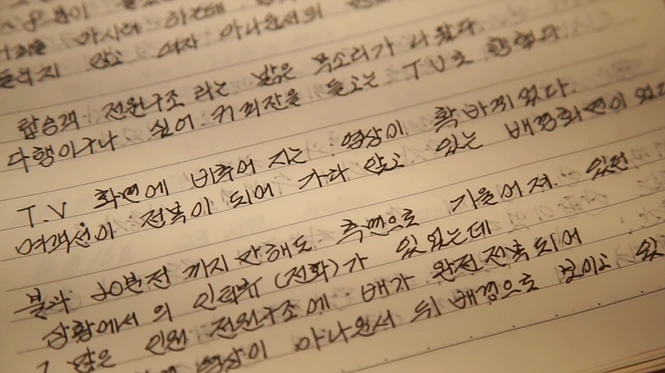 들리지 않고 여자 아나운서의
탑승객 전원구조 라는 낮은 목소리가 나왔다.
다행이구나 싶어 커피잔을 들고는 TV로 향했다
T.V 화면에 비추어 지는 영상이 확 바뀌었다.
여객선이 전복이 되어 가라 앉고 있는 배경화면이 있고
불과 20분전 까지만해도 측면으로 기울어져 있던
상황에서의 인터뷰(전화)가 있었는데
그 많은 인원 전원구조에 배가 완전전복되어
영상이 아나운서 뒤 배경으로 보이고 있